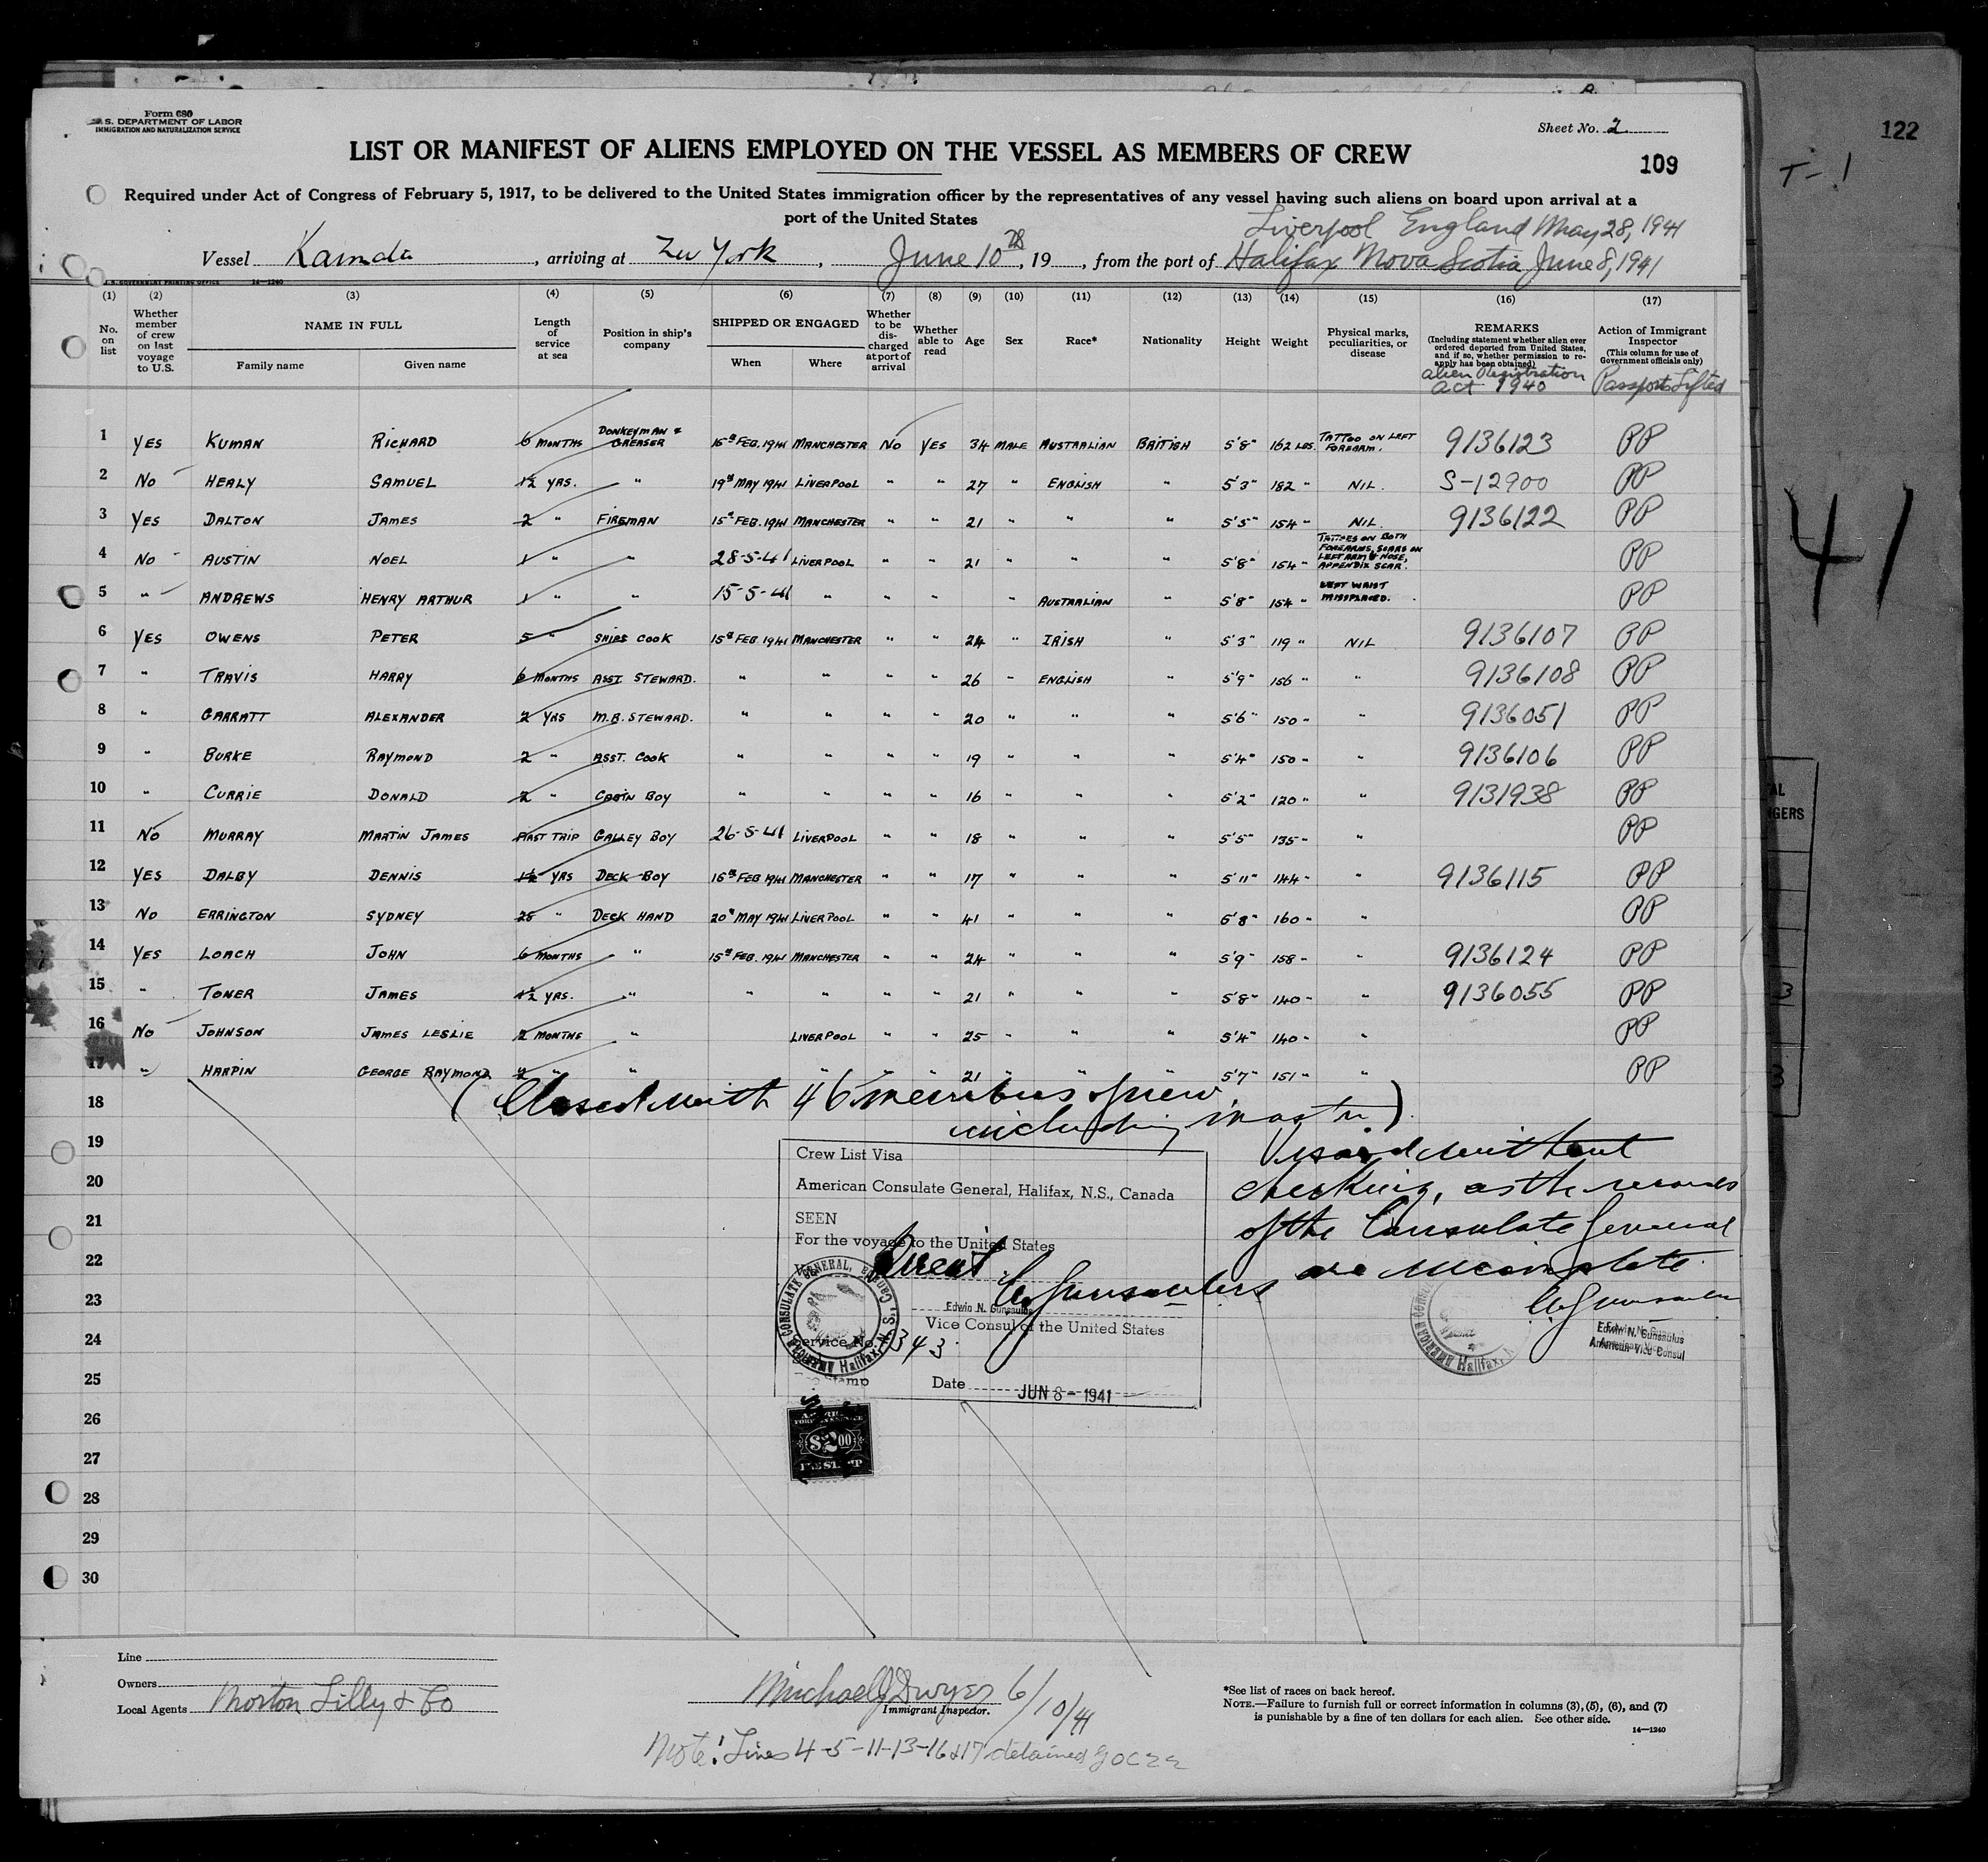 Form 680
U.S. DEPARTMENT OF LABOR
IMMIGRATION AND NATURALIZATION SERVICE
Sheet No. 2
LIST OR MANIFEST OF ALIENS EMPLOYED ON THE VESSEL AS MEMBERS OF CREW
109
122
T-1
41
Required under Act of Congress of February 5, 1917, to be delivered to the United States immigration officer by the representatives of any vessel having such aliens on board upon arrival at a
port of the United States
Liverpool England May 28, 1941
Vessel , arriving at New York, June 10th, 19 , from the port of Halifax Nova Scotia June 8, 1941
U.S. GOVERNMENT PRINTING OFFICE 14—1240
(1) (2) (3) (4) (5) (6) (7) (8) (9) (10) (11) (12) (13) (14) (15) (16) (17)
No. on list
Whether member of crew on last voyage to U.S.
NAME IN FULL
Family name
Given name
Length of service at sea
Position in ship's company
SHIPPED OR ENGAGED
When
Where
Whether to be discharged at port of arrival
Whether able to read
Age
Sex
Race*
Nationality
Height
Weight
Physical marks, peculiarities, or disease
REMARKS
(Including statement whether alien ever ordered deported from United States, and if so, whether permission to reapply has been obtained)
Alien Registration
Act 1940
Action of Immigrant Inspector
(This column for use of Government officials only)
Passports Lifted
1 YES KUMAN RICHARD 6 MONTHS DONKEYMAN & GREASER 15th FEB. 1941 MANCHESTER NO YES 34 MALE AUSTRALIAN BRITISH 5'8" 162 LBS. TATTOO ON LEFT FOREARM. 9136123 PP
2 NO HEALY SAMUEL 1½ YRS. " 19th MAY 1941 LIVERPOOL " " 27 " ENGLISH " 5'3" 182 " NIL. S-12900 PP
3 YES DALTON JAMES 2 " FIREMAN 15th FEB. 1941 MANCHESTER " " 21 " " " 5'5" 154 " NIL. 9136122 PP
4 NO AUSTIN NOEL 1 " " 28-5-41 LIVERPOOL " " 21 " " " 5'8" 154 " TATTOES ON BOTH FOREARMS, SCARS ON LEFT ARM & NOSE, APPENDIX SCAR. PP
5 " ANDREWS HENRY ARTHUR 1 " " 15-5-41 " " " " AUSTRALIAN " 5'8" 154 " LEFT WRIST MISSPLACED. PP
6 YES OWENS PETER 5 " SHIPS COOK 15th FEB. 1941 MANCHESTER " " 24 " IRISH " 5'3" 119 " NIL 9136107 PP
7 " TRAVIS HARRY 6 MONTHS ASST. STEWARD. " " " " 26 " ENGLISH " 5'9" 156 " " 9136108 PP
8 " GARRATT ALEXANDER 2 YRS M.R. STEWARD. " " " " 20 " " " 5'6" 150 " " 9136051 PP
9 " BURKE RAYMOND 2 " ASST. COOK " " " " 19 " " " 5'4" 150 " " 9136106 PP
10 " CURRIE DONALD 2 " CABIN BOY " " " " 16 " " " 5'2" 120 " " 9131938 PP
11 NO MURRAY MARTIN JAMES FIRST TRIP GALLEY BOY 26-5-41 LIVERPOOL " " 18 " " " 5'5" 135 " " PP
12 YES DALBY DENNIS 1½ YRS DECK BOY 15th FEB 1941 MANCHESTER " " 17 " " " 5'11" 144 " " 9136115 PP
13 NO ERRINGTON SYDNEY 25 " DECK HAND 20th MAY 1941 LIVERPOOL " " 41 " " " 5'8" 160 " " PP
14 YES LOACH JOHN 6 MONTHS " 15th FEB. 1941 MANCHESTER " " 24 " " " 5'9" 158 " " 9136124 PP
15 " TONER JAMES 1½ YRS. " " " " " 21 " " " 5'8" 140 " " 9136055 PP
16 NO JOHNSON JAMES LESLIE 2 MONTHS " LIVERPOOL " " 25 " " " 5'4" 140 " " PP
17 " HARPIN GEORGE RAYMOND 2 " " " " " 21 " " " 5'7" 151 " " PP
18 (Closed with 46 members of crew
including master)
19
20
21
22
23
24
25
26
27
28
29
30
Crew List Visa
American Consulate General, Halifax, N.S., Canada
SEEN
For the voyage to the United States
Edwin N. Gunsaulus
Vice Consul of the United States
Service No. 343
Date JUN 8 - 1941
AMERICAN CONSULATE GENERAL, HALIFAX, N.S. CANADA
$2.00
FEE STAMP
Visaed without
checking, as the records
of the Consulate General
are incomplete.
Edwin N. Gunsaulus
American Vice Consul
Line
Owners
Local Agents Morton Lilly & Co
Michael J Dwyer 6/10/41
Immigrant Inspector.
Note: Lines 4-5-11-13-16 & 17 detained
*See list of races on back hereof.
NOTE.—Failure to furnish full or correct information in columns (3), (5), (6), and (7)
is punishable by a fine of ten dollars for each alien. See other side.
14—1240